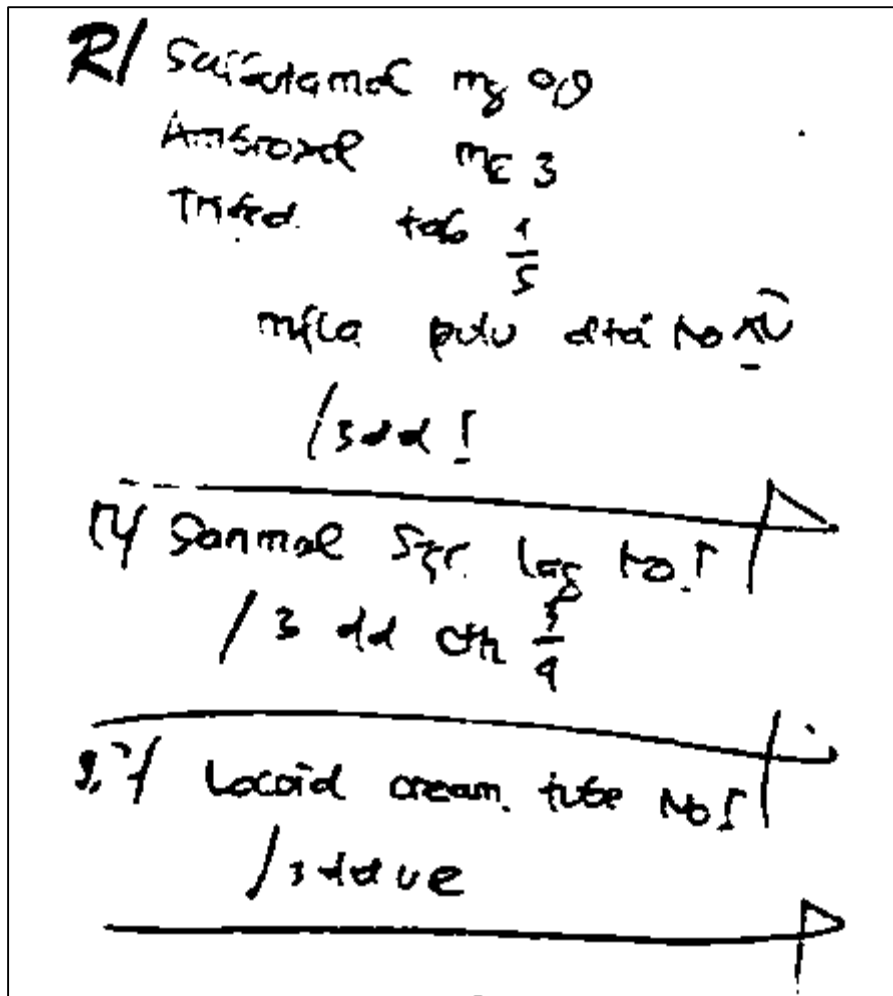 R/ Salbutamol mg
Ambroxol mg 3
Trifed tab 1/5
mfla pulv dtd No XV
/3 dd I
R/ Sanmol Syr. lag No I
/ 3 dd cth 3/4
R/ Locoid cream. tube No I
/3 dd ue